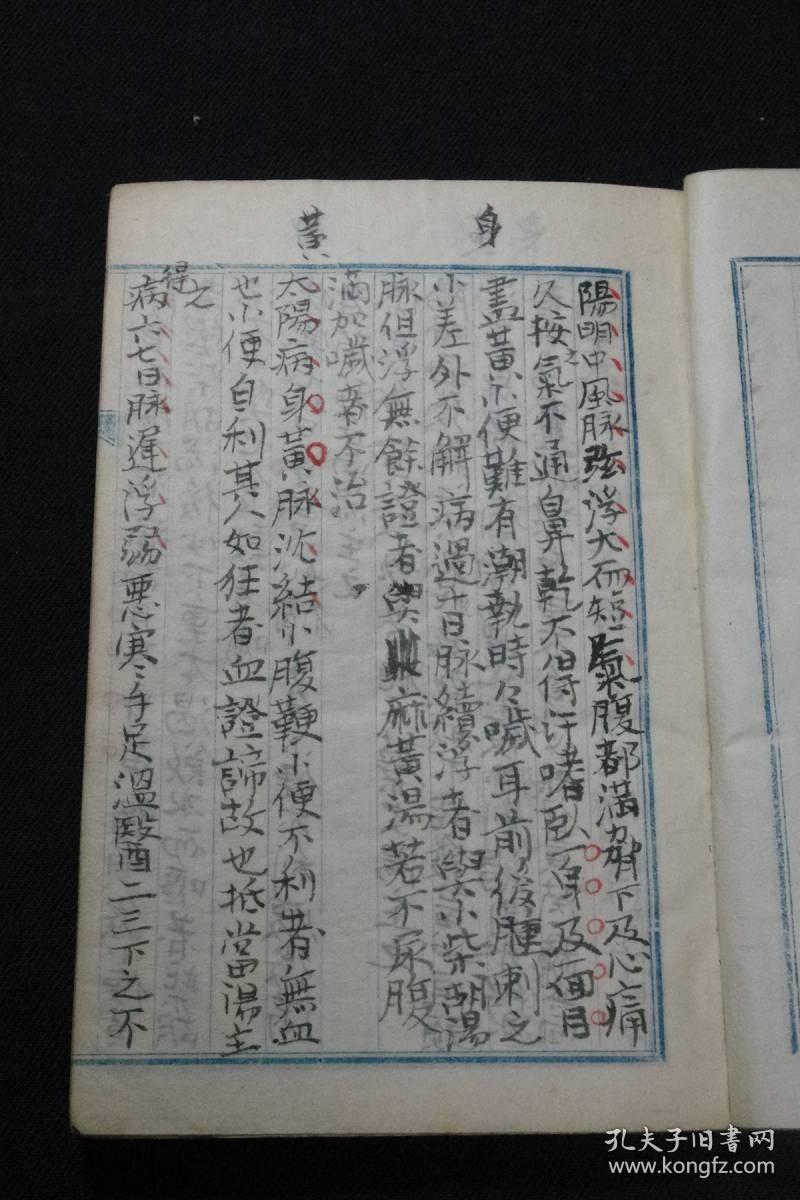 身
黃
陽明中風脉弦浮大而短氣腹都滿脅下及心痛
久按之氣不通鼻乾不得汗嗜臥一身及面目
盡黃小便難有潮熱時々噦耳前後腫刺之
小差外不解病過十日脉續浮者與小柴胡湯
脉但浮無餘證者與麻黃湯若不尿腹
滿加噦者不治
太陽病身黃脉沈結小腹鞕小便不利者無血
也小便自利其人如狂者血證諦故也抵當湯主
之
得病六七日脉遲浮弱惡寒手足溫醫二三下之不
孔夫子旧书网
www.kongfz.com